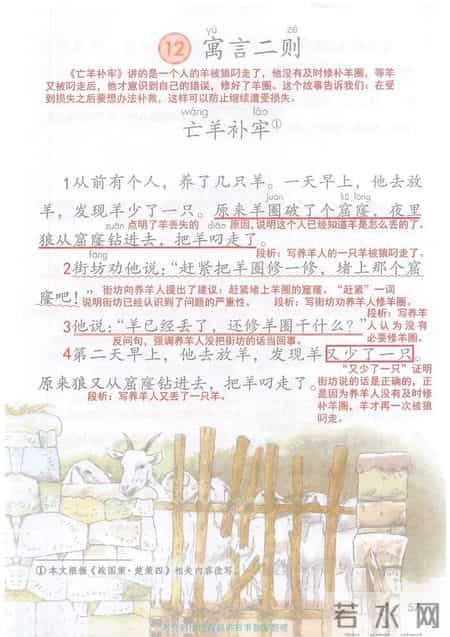 yù zé
12 寓言二则
《亡羊补牢》讲的是一个人的羊被狼叼走了，他没有及时修补羊圈，等羊
又被叼走后，他才意识到自己的错误，修好了羊圈。这个故事告诉我们：在受
到损失之后要想办法补救，这样可以防止继续遭受损失。
wáng láo
亡羊补牢①
1从前有个人，养了几只羊。一天早上，他去放
juàn kū lóng
羊，发现羊少了一只。原来羊圈破了个窟窿，夜里
zuān 点明了羊丢失的 diāo 原因，说明这个人已经知道羊是怎么丢的了。
狼从窟窿钻进去，把羊叼走了。
段析：写养羊人的一只羊被狼叼走了。
fáng
2街坊劝他说：“赶紧把羊圈修一修，堵上那个窟
窿吧！”
街坊向养羊人提出了建议：赶紧堵上羊圈的窟窿。“赶紧”一词
说明街坊已经认识到了问题的严重性。 段析：写街坊劝养羊人修羊圈。
3他说：“羊已经丢了，还修羊圈干什么？”
段析：写养羊
人认为没有
必要修羊圈。
反问句，强调养羊人没把街坊的话当回事。
4第二天早上，他去放羊，发现羊又少了一只。
原来狼又从窟窿钻进去，把羊叼走了。
段析：写养羊人又丢了一只羊。
“又少了一只”证明
街坊说的话是正确的，正
是因为养羊人没有及时修
补羊圈，羊才再一次被狼
叼走。
①本文根据《战国策·楚策四》相关内容改写。
若水网